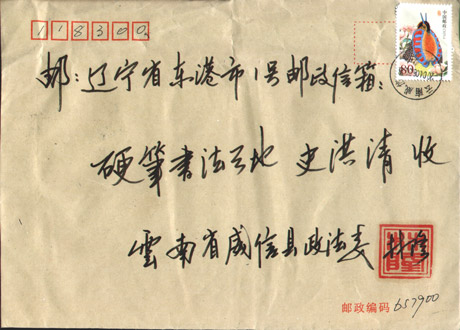 118300
邮:辽宁省东港市1号邮政信箱:
硬筆书法天地 史洪清 收
雲南省威信县政法委 林穆
邮政编码 657900
中国邮政
80